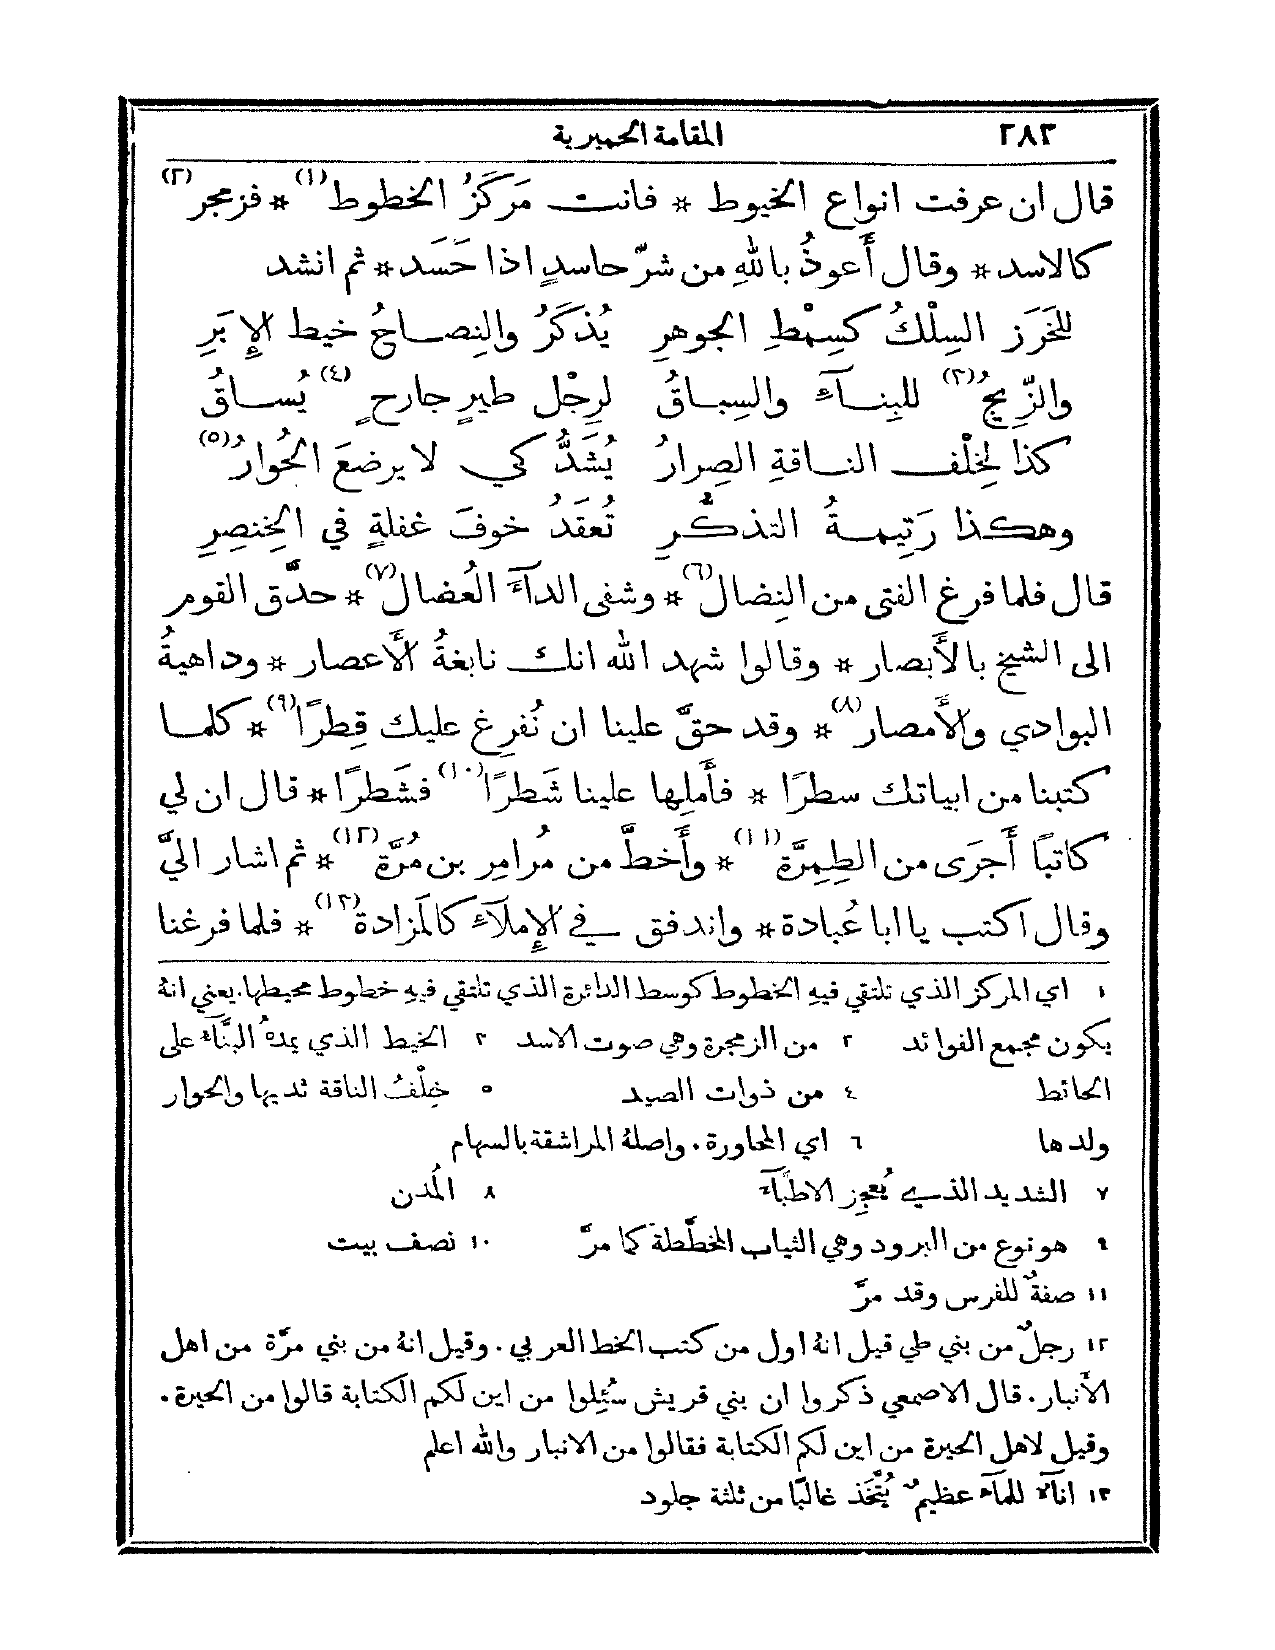 ٢٨٢ المقامة الحميرية
قال ان عرفت انواع الخيوط * فانت مَركَزُ الخطوط(١) * فزمجر(٢)
كالاسد * وقال أَعوذُ بالله من شرّ حاسدٍ اذا حَسَد * ثم انشد
للخَرَز السِلْكُ كسِمْطِ الجوهرِ يُذكَرُ والنِصاحُ خيط الإِبَرِ
والزِّيجُ(٣) للبِنآءَ والسِباقُ لرِجْل طيرٍ جارحٍ(٤) يُساقُ
كذا لخِلْفِ الناقةِ الصِرارُ يُشَدُّ كي لا يرضعَ الحُوارُ(٥)
وهكذا رَتِيمةُ التذكُّرِ تُعقَدُ خوفَ غفلةٍ في الخِنصِرِ
قال فلما فرغ الفتى من النِضال(٦) * وشفى الدآءَ العُضال(٧) * حدَّق القوم
الى الشيخ بالأَبصار * وقالوا شهد الله انك نابغةُ الأَعصار * وداهيةُ
البوادي والأَمصار(٨) * وقد حقَّ علينا ان نُفرِغ عليك قِطرًا(٩) * كلما
كتبنا من ابياتك سطرًا * فأَمِلها علينا شَطرًا(١٠) فشَطرًا * قال ان لي
كاتبًا أَجرَى من الطِمِرَّة(١١) * وأَخطَّ من مُرامِر بن مُرَّة(١٢) * ثم اشار اليَّ
وقال اكتب يا ابا عُبادة * واندفق في الإِملآءَ كالمَزادة(١٣) * فلما فرغنا
١ اي المركز الذي تلتقي فيهِ الخطوط كوسط الدائرة الذي تلتقي فيهِ خطوط محيطها. يعني انهُ
يكون مجمع الفوائد ٢ من الزمجرة وهي صوت الاسد ٣ الخيط الذي يمدهُ البنَّآءَ على
الحائط ٤ من ذوات الصيد ٥ خِلْفُ الناقة ثديها والحوار
ولدها ٦ اي المحاورة. واصلهُ المراشقة بالسهام
٧ الشديد الذي يُعجِز الاطبَّآءَ ٨ المُدن
٩ هو نوع من البرود وهي الثياب المخطَّطة كما مرَّ ١٠ نصف بيت
١١ صفةٌ للفرس وقد مرَّ
١٢ رجلٌ من بني طي قيل انهُ اول من كتب الخط العربي. وقيل انهُ من بني مرَّة من اهل
الأَنبار. قال الاصمعي ذكروا ان بني قريش سُئِلوا من اين لكم الكتابة قالوا من الحيرة.
وقيل لاهل الحيرة من اين لكم الكتابة فقالوا من الانبار والله اعلم
١٣ انآءٌ للمآءَ عظيمٌ يُتَّخَذ غالبًا من ثلثة جلود